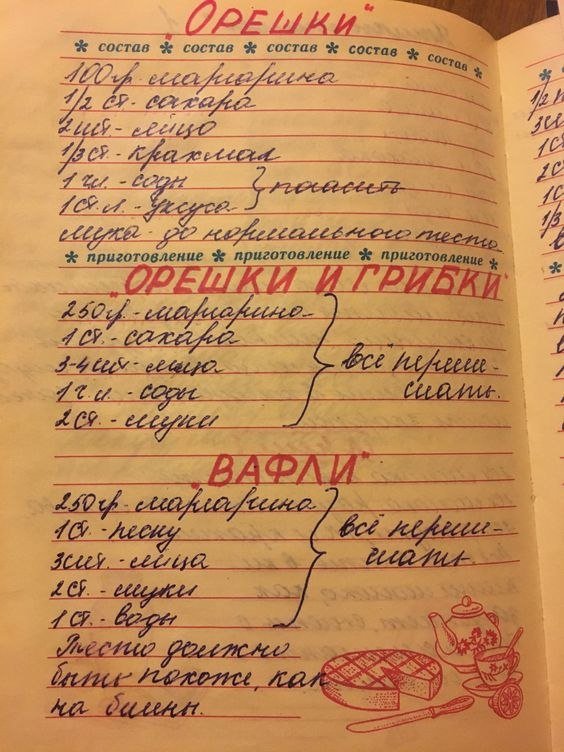 "ОРЕШКИ"
* состав * состав * состав * состав * состав *
100гр. маргарина
1/2 ст. сахара
2шт. яйцо
1/3 ст. крахмал
1 чл. соды
1ст. л. уксуса
} погасить
мука - до нормального теста
* приготовление * приготовление * приготовление *
"ОРЕШКИ И ГРИБКИ"
250гр. маргарина
1 ст. сахара
3-4шт. яйца
1 ч. л. соды
2 ст. муки
} всё переме-
шать.
"ВАФЛИ"
250гр. маргарина
1 ст. песку
3шт. яйца
2 ст. муки
1 ст. воды
} всё переме-
шать.
Тесто должно
быть похоже, как
на блины.
1/2
3
1 с
2 с
1 с
1/3